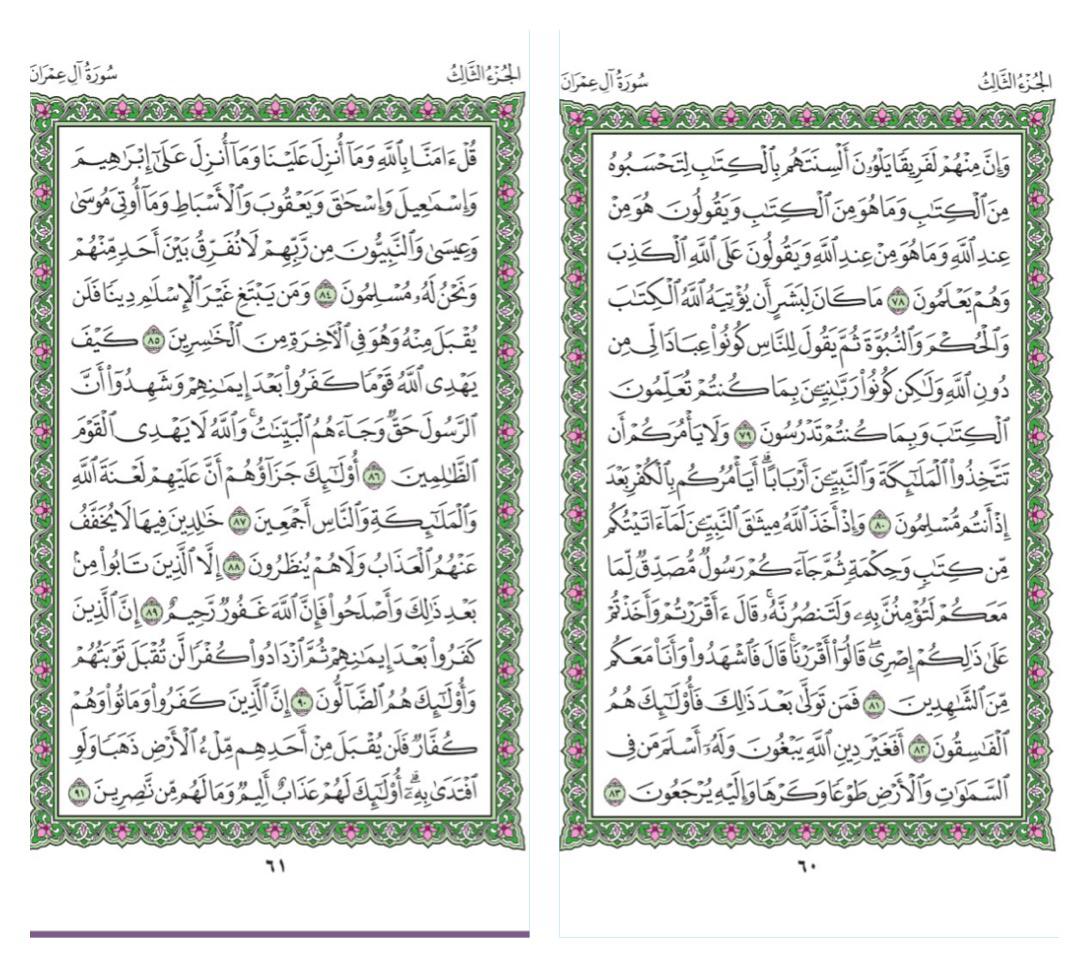 الجُزْءُ الثَّالِثُ
سُورَةُ آلِ عِمْرَانَ
وَإِنَّ مِنْهُمْ لَفَرِيقًا يَلْوُۥنَ أَلْسِنَتَهُم بِٱلْكِتَٰبِ لِتَحْسَبُوهُ
مِنَ ٱلْكِتَٰبِ وَمَا هُوَ مِنَ ٱلْكِتَٰبِ وَيَقُولُونَ هُوَ مِنْ
عِندِ ٱللَّهِ وَمَا هُوَ مِنْ عِندِ ٱللَّهِ وَيَقُولُونَ عَلَى ٱللَّهِ ٱلْكَذِبَ
وَهُمْ يَعْلَمُونَ ٧٨ مَا كَانَ لِبَشَرٍ أَن يُؤْتِيَهُ ٱللَّهُ ٱلْكِتَٰبَ
وَٱلْحُكْمَ وَٱلنُّبُوَّةَ ثُمَّ يَقُولَ لِلنَّاسِ كُونُوا۟ عِبَادًا لِّى مِن
دُونِ ٱللَّهِ وَلَٰكِن كُونُوا۟ رَبَّٰنِيِّۦنَ بِمَا كُنتُمْ تُعَلِّمُونَ
ٱلْكِتَٰبَ وَبِمَا كُنتُمْ تَدْرُسُونَ ٧٩ وَلَا يَأْمُرَكُمْ أَن
تَتَّخِذُوا۟ ٱلْمَلَٰٓئِكَةَ وَٱلنَّبِيِّۦنَ أَرْبَابًا ۗ أَيَأْمُرُكُم بِٱلْكُفْرِ بَعْدَ
إِذْ أَنتُم مُّسْلِمُونَ ٨٠ وَإِذْ أَخَذَ ٱللَّهُ مِيثَٰقَ ٱلنَّبِيِّۦنَ لَمَآ ءَاتَيْتُكُم
مِّن كِتَٰبٍ وَحِكْمَةٍ ثُمَّ جَآءَكُمْ رَسُولٌ مُّصَدِّقٌ لِّمَا
مَعَكُمْ لَتُؤْمِنُنَّ بِهِۦ وَلَتَنصُرُنَّهُۥ ۚ قَالَ ءَأَقْرَرْتُمْ وَأَخَذْتُمْ
عَلَىٰ ذَٰلِكُمْ إِصْرِى ۖ قَالُوٓا۟ أَقْرَرْنَا ۚ قَالَ فَٱشْهَدُوا۟ وَأَنَا۠ مَعَكُم
مِّنَ ٱلشَّٰهِدِينَ ٨١ فَمَن تَوَلَّىٰ بَعْدَ ذَٰلِكَ فَأُو۟لَٰٓئِكَ هُمُ
ٱلْفَٰسِقُونَ ٨٢ أَفَغَيْرَ دِينِ ٱللَّهِ يَبْغُونَ وَلَهُۥٓ أَسْلَمَ مَن فِى
ٱلسَّمَٰوَٰتِ وَٱلْأَرْضِ طَوْعًا وَكَرْهًا وَإِلَيْهِ يُرْجَعُونَ ٨٣
٦٠
الجُزْءُ الثَّالِثُ
سُورَةُ آلِ عِمْرَانَ
قُلْ ءَامَنَّا بِٱللَّهِ وَمَآ أُنزِلَ عَلَيْنَا وَمَآ أُنزِلَ عَلَىٰٓ إِبْرَٰهِيمَ
وَإِسْمَٰعِيلَ وَإِسْحَٰقَ وَيَعْقُوبَ وَٱلْأَسْبَاطِ وَمَآ أُوتِىَ مُوسَىٰ
وَعِيسَىٰ وَٱلنَّبِيُّونَ مِن رَّبِّهِمْ لَا نُفَرِّقُ بَيْنَ أَحَدٍ مِّنْهُمْ
وَنَحْنُ لَهُۥ مُسْلِمُونَ ٨٤ وَمَن يَبْتَغِ غَيْرَ ٱلْإِسْلَٰمِ دِينًا فَلَن
يُقْبَلَ مِنْهُ وَهُوَ فِى ٱلْءَاخِرَةِ مِنَ ٱلْخَٰسِرِينَ ٨٥ كَيْفَ
يَهْدِى ٱللَّهُ قَوْمًا كَفَرُوا۟ بَعْدَ إِيمَٰنِهِمْ وَشَهِدُوٓا۟ أَنَّ
ٱلرَّسُولَ حَقٌّ وَجَآءَهُمُ ٱلْبَيِّنَٰتُ ۚ وَٱللَّهُ لَا يَهْدِى ٱلْقَوْمَ
ٱلظَّٰلِمِينَ ٨٦ أُو۟لَٰٓئِكَ جَزَآؤُهُمْ أَنَّ عَلَيْهِمْ لَعْنَةَ ٱللَّهِ
وَٱلْمَلَٰٓئِكَةِ وَٱلنَّاسِ أَجْمَعِينَ ٨٧ خَٰلِدِينَ فِيهَا لَا يُخَفَّفُ
عَنْهُمُ ٱلْعَذَابُ وَلَا هُمْ يُنظَرُونَ ٨٨ إِلَّا ٱلَّذِينَ تَابُوا۟ مِنۢ
بَعْدِ ذَٰلِكَ وَأَصْلَحُوا۟ فَإِنَّ ٱللَّهَ غَفُورٌ رَّحِيمٌ ٨٩ إِنَّ ٱلَّذِينَ
كَفَرُوا۟ بَعْدَ إِيمَٰنِهِمْ ثُمَّ ٱزْدَادُوا۟ كُفْرًا لَّن تُقْبَلَ تَوْبَتُهُمْ
وَأُو۟لَٰٓئِكَ هُمُ ٱلضَّآلُّونَ ٩٠ إِنَّ ٱلَّذِينَ كَفَرُوا۟ وَمَاتُوا۟ وَهُمْ
كُفَّارٌ فَلَن يُقْبَلَ مِنْ أَحَدِهِم مِّلْءُ ٱلْأَرْضِ ذَهَبًا وَلَوِ
ٱفْتَدَىٰ بِهِۦٓ ۗ أُو۟لَٰٓئِكَ لَهُمْ عَذَابٌ أَلِيمٌ وَمَا لَهُم مِّن نَّٰصِرِينَ ٩١
٦١